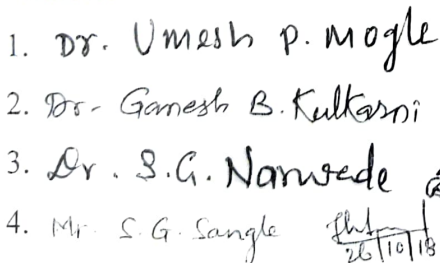 1. Dr. Umesh P. Mogle
2. Dr. Ganesh B. Kulkarni
3. Dr. S.G. Narwade
4. Mr. S.G. Sangle
26/10/18